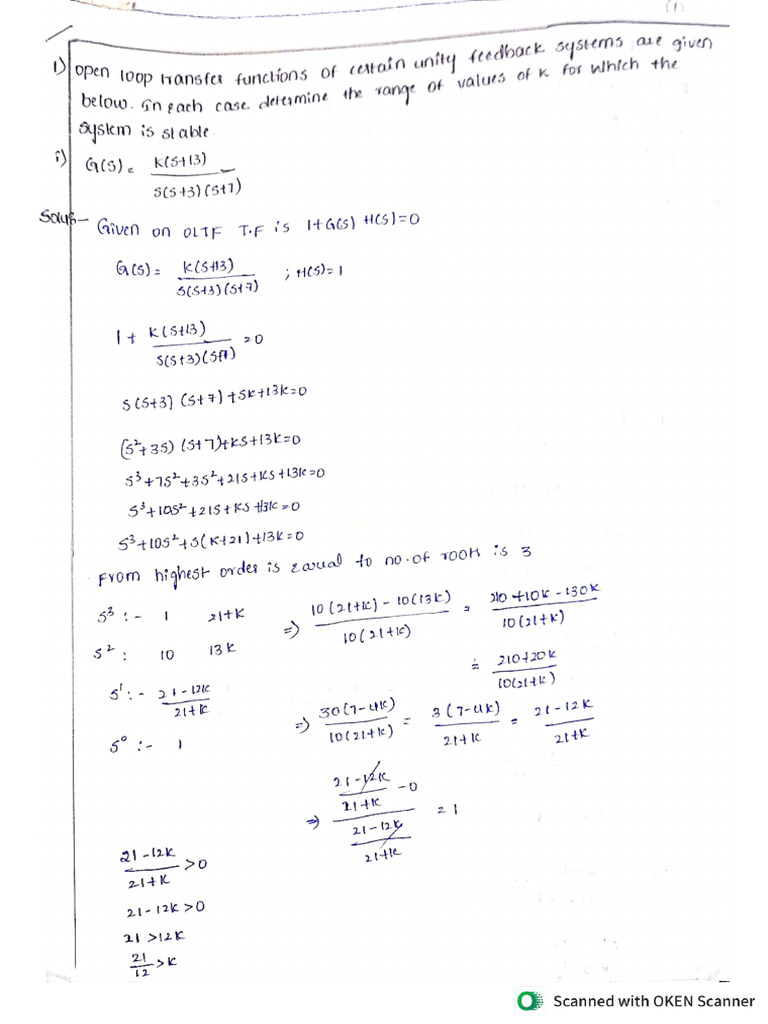 (1)
1) open loop transfer functions of certain unity feedback systems are given
below. In each case determine the range of values of K for which the
system is stable
i) G(S) = K(S+13) / S(S+3)(S+7)
Solu:- Given on OLTF T.F is 1+G(S) H(S)=0
G(S) = K(S+13) / S(S+3)(S+7) ; H(S)=1
1 + K(S+13) / S(S+3)(S+7) = 0
S(S+3) (S+7)+SK+13K=0
(S²+3S) (S+7)+KS+13K=0
S³+7S²+3S²+21S+KS+13K=0
S³+10S²+21S+KS+13K=0
S³+10S²+S(K+21)+13K=0
From highest order is equal to no.of roots is 3
S³ :- 1 21+K => 10(21+K) - 10(13K) / 10(21+K) = 210+10K-130K / 10(21+K)
S² : 10 13K
= 210+20K / 10(21+K)
S¹ :- 21-12K / 21+K => 30(7-4K) / 10(21+K) = 3(7-4K) / 21+K = 21-12K / 21+K
S⁰ :- 1
=> 21-12K / 21+K - 0 / 21-12K / 21+K = 1
21-12K / 21+K > 0
21-12K>0
21>12K
21/12 >K
Scanned with OKEN Scanner